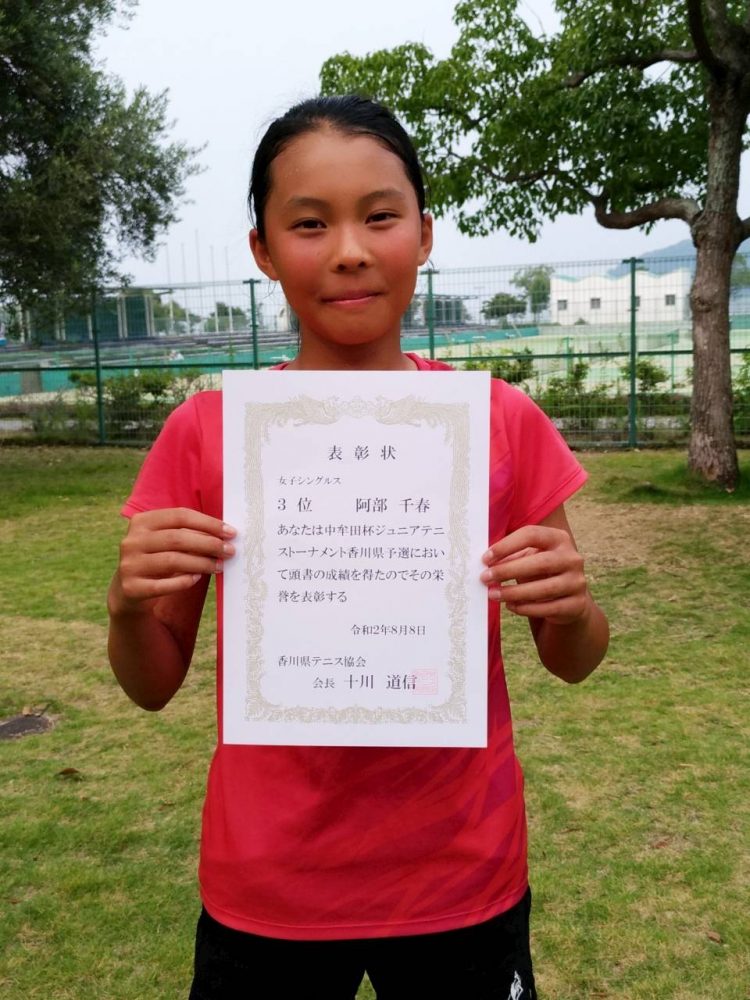 表彰状
女子シングルス
3位 阿部 千春
あなたは中牟田杯ジュニアテニ
ストーナメント香川県予選におい
て頭書の成績を得たのでその栄
誉を表彰する
令和2年8月8日
香川県テニス協会
会長 十川 道信